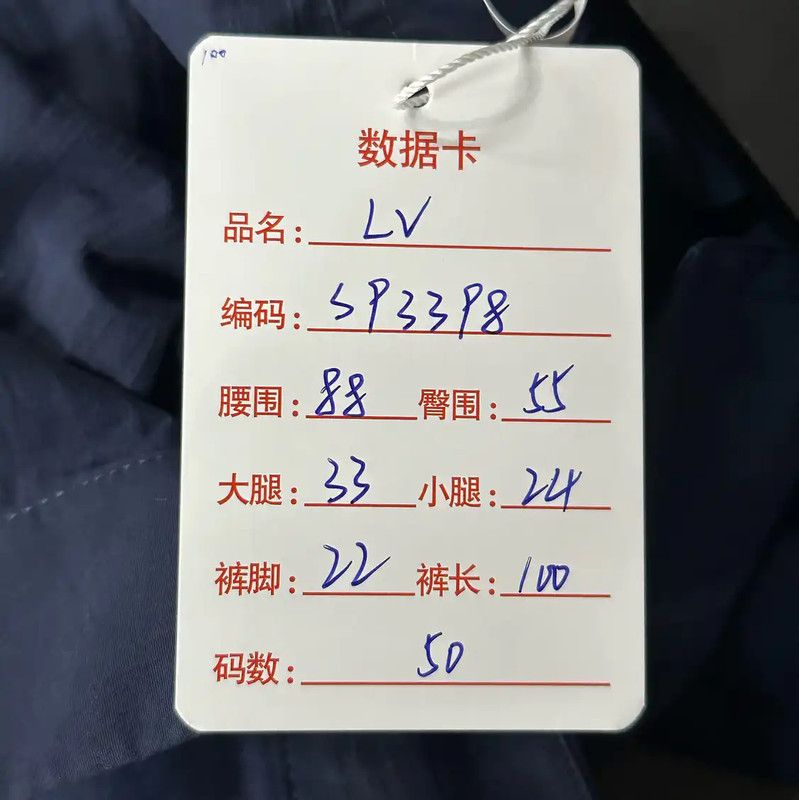 100
数据卡
品名: LV
编码: SP3398
腰围: 88 臀围: 55
大腿: 33 小腿: 24
裤脚: 22 裤长: 100
码数: 50